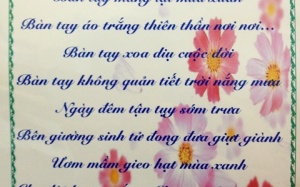 Bàn tay áo trắng thiên thần nơi nơi...
Bàn tay xoa dịu cuộc đời
Bàn tay không quản tiết trời nắng mưa
Ngày đêm tận tụy sớm trưa
Bên giường sinh tử đong đưa giựt giành
Ươm mầm gieo hạt mùa xanh